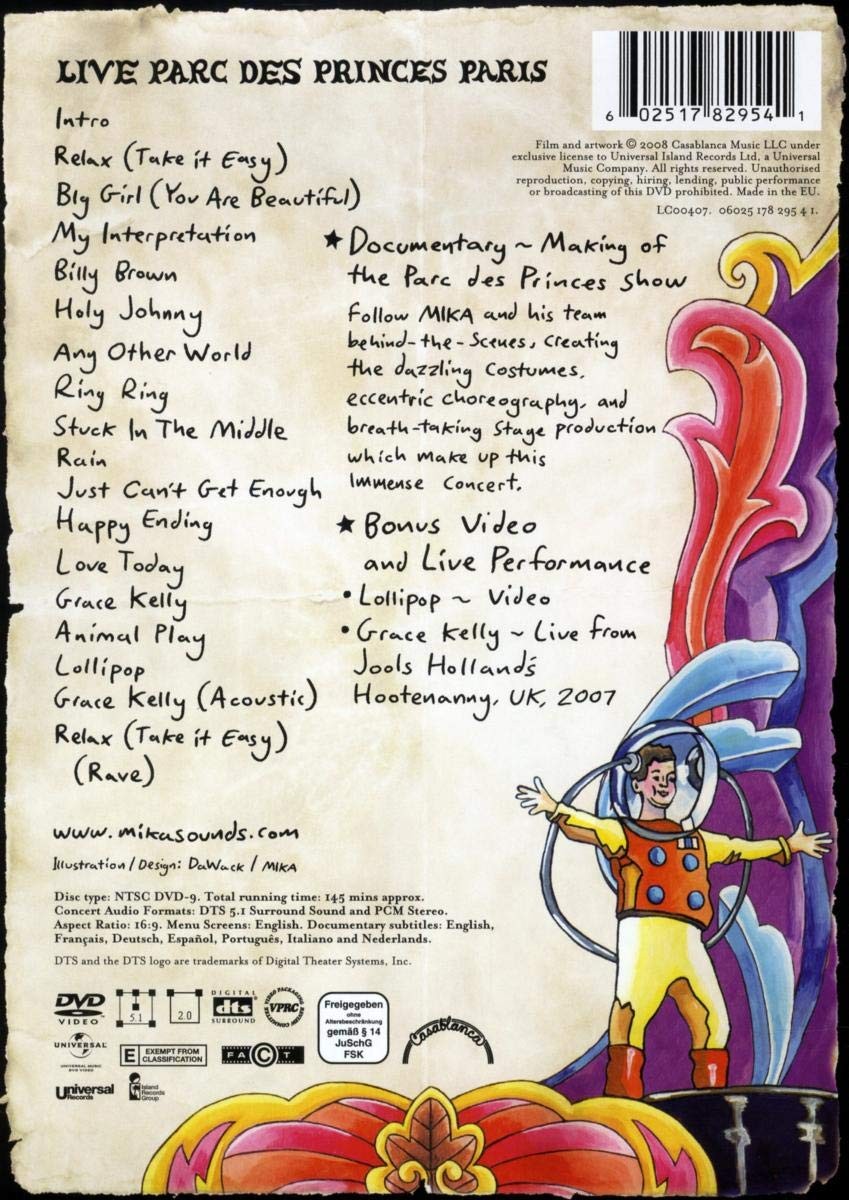 LIVE PARC DES PRINCES PARIS
Intro
Relax (Take it Easy)
Big Girl (You Are Beautiful)
My Interpretation
Billy Brown
Holy Johnny
Any Other World
Ring Ring
Stuck In The Middle
Rain
Just Can't Get Enough
Happy Ending
Love Today
Grace Kelly
Animal Play
Lollipop
Grace Kelly (Acoustic)
Relax (Take it Easy)
(Rave)
6 02517 82954 1
Film and artwork © 2008 Casablanca Music LLC under
exclusive license to Universal Island Records Ltd, a Universal
Music Company. All rights reserved. Unauthorised
reproduction, copying, hiring, lending, public performance
or broadcasting of this DVD prohibited. Made in the EU.
LC00407. 06025 178 295 4 1.
★ Documentary ~ Making of
the Parc des Princes Show
Follow MIKA and his team
behind-the-Scenes, creating
the dazzling costumes,
eccentric choreography, and
breath-taking stage production
which make up this
Immense Concert.
★ Bonus Video
and Live Performance
• Lollipop ~ Video
• Grace Kelly ~ Live from
Jools Holland's
Hootenanny, UK, 2007
www.mikasounds.com
Illustration / Design: DaWack / MIKA
Disc type: NTSC DVD-9. Total running time: 145 mins approx.
Concert Audio Formats: DTS 5.1 Surround Sound and PCM Stereo.
Aspect Ratio: 16:9. Menu Screens: English. Documentary subtitles: English,
Français, Deutsch, Español, Português, Italiano and Nederlands.
DTS and the DTS logo are trademarks of Digital Theater Systems, Inc.
DVD
VIDEO
5.1
2.0
DIGITAL
dts
SURROUND
VPRC
Freigegeben
ohne
Altersbeschränkung
gemäß § 14
JuSchG
FSK
Casablanca
UNIVERSAL
UNIVERSAL MUSIC
DVD VIDEO
E EXEMPT FROM
CLASSIFICATION
FACT
Universal
Records
Island
Records
Group